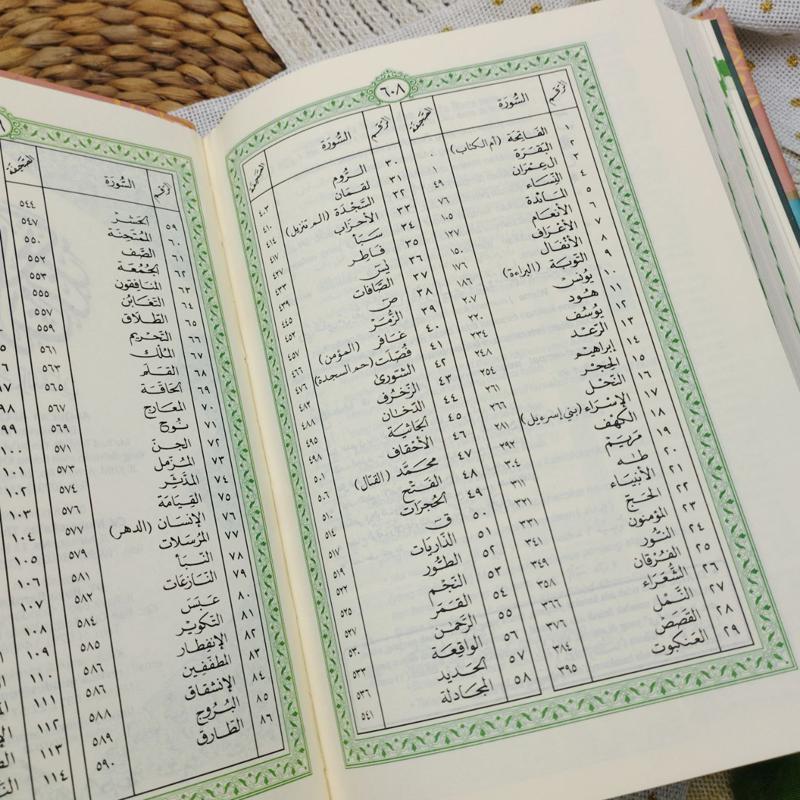 ٦٠٨
الرقم السورة الصفحة
١ الفاتحة (ام الكتاب) ٠
٢ البقرة ١
٣ ال عمران ٤٩
٤ النساء ٧٦
٥ المائدة ١٠٥
٦ الأنعام ١٢٧
٧ الأعراف ١٥٠
٨ الأنفال ١٧٦
٩ التوبة (البراءة) ١٨٦
١٠ يونس ٢٠٧
١١ هود ٢٢٠
١٢ يوسف ٢٣٤
١٣ الرعد ٢٤٨
١٤ إبراهيم ٢٥٤
١٥ الحجر ٢٦١
١٦ النحل ٢٦٦
١٧ الإسراء (بني إسرءيل) ٢٨١
١٨ الكهف ٢٩٢
١٩ مريم ٣٠٤
٢٠ طه ٣١٢
٢١ الأنبياء ٣٢١
٢٢ الحج ٣٣١
٢٣ المؤمنون ٣٤١
٢٤ النور ٣٤٩
٢٥ الفرقان ٣٥٨
٢٦ الشعراء ٣٦٦
٢٧ النمل ٣٧٦
٢٨ القصص ٣٨٤
٢٩ العنكبوت ٣٩٥
الرقم السورة الصفحة
٣٠ الروم ٤٠٣
٣١ لقمان ٤١٠
٣٢ السجدة (الم تنزيل) ٤١٤
٣٣ الأحزاب ٤١٧
٣٤ سبأ ٤٢٧
٣٥ فاطر ٤٣٣
٣٦ يس ٤٣٩
٣٧ الصافات ٤٤٥
٣٨ ص ٤٥٢
٣٩ الزمر ٤٥٧
٤٠ غافر (المؤمن) ٤٦٦
٤١ فصلت (حم السجدة) ٤٧٦
٤٢ الشورى ٤٨٣
٤٣ الزخرف ٤٨٨
٤٤ الدخان ٤٩٥
٤٥ الجاثية ٤٩٨
٤٦ الأحقاف ٥٠١
٤٧ محمد (القتال) ٥٠٦
٤٨ الفتح ٥١٠
٤٩ الحجرات ٥١٤
٥٠ ق ٥١٧
٥١ الذاريات ٥١٩
٥٢ الطور ٥٢٢
٥٣ النجم ٥٢٥
٥٤ القمر ٥٢٧
٥٥ الرحمن ٥٣٠
٥٦ الواقعة ٥٣٣
٥٧ الحديد ٥٣٦
٥٨ المجادلة ٥٤١
الرقم السورة الصفحة
٥٩ الحشر ٥٤٤
٦٠ الممتحنة ٥٤٧
٦١ الصف ٥٥٠
٦٢ الجمعة ٥٥٢
٦٣ المنافقون ٥٥٣
٦٤ التغابن ٥٥٥
٦٥ الطلاق ٥٥٧
٦٦ التحريم ٥٥٩
٦٧ الملك ٥٦١
٦٨ القلم ٥٦٣
٦٩ الحاقة ٥٦٥
٧٠ المعارج ٥٦٧
٧١ نوح ٥٦٩
٧٢ الجن ٥٧١
٧٣ المزمل ٥٧٣
٧٤ المدثر ٥٧٤
٧٥ القيامة ٥٧٦
٧٦ الإنسان (الدهر) ٥٧٧
٧٧ المرسلات ٥٧٩
٧٨ النبأ ٥٨١
٧٩ النازعات ٥٨٢
٨٠ عبس ٥٨٤
٨١ التكوير ٥٨٥
٨٢ الإنفطار ٥٨٦
٨٣ المطففين ٥٨٦
٨٤ الإنشقاق ٥٨٨
٨٥ البروج ٥٨٩
٨٦ الطارق ٥٩٠
١٠٠
١٠١
١٠٢
١٠٣
١٠٤
١٠٥
١٠٦
١٠٧
١٠٨
١٠٩
١١٠
١١١
١١٢
١١٣
١١٤